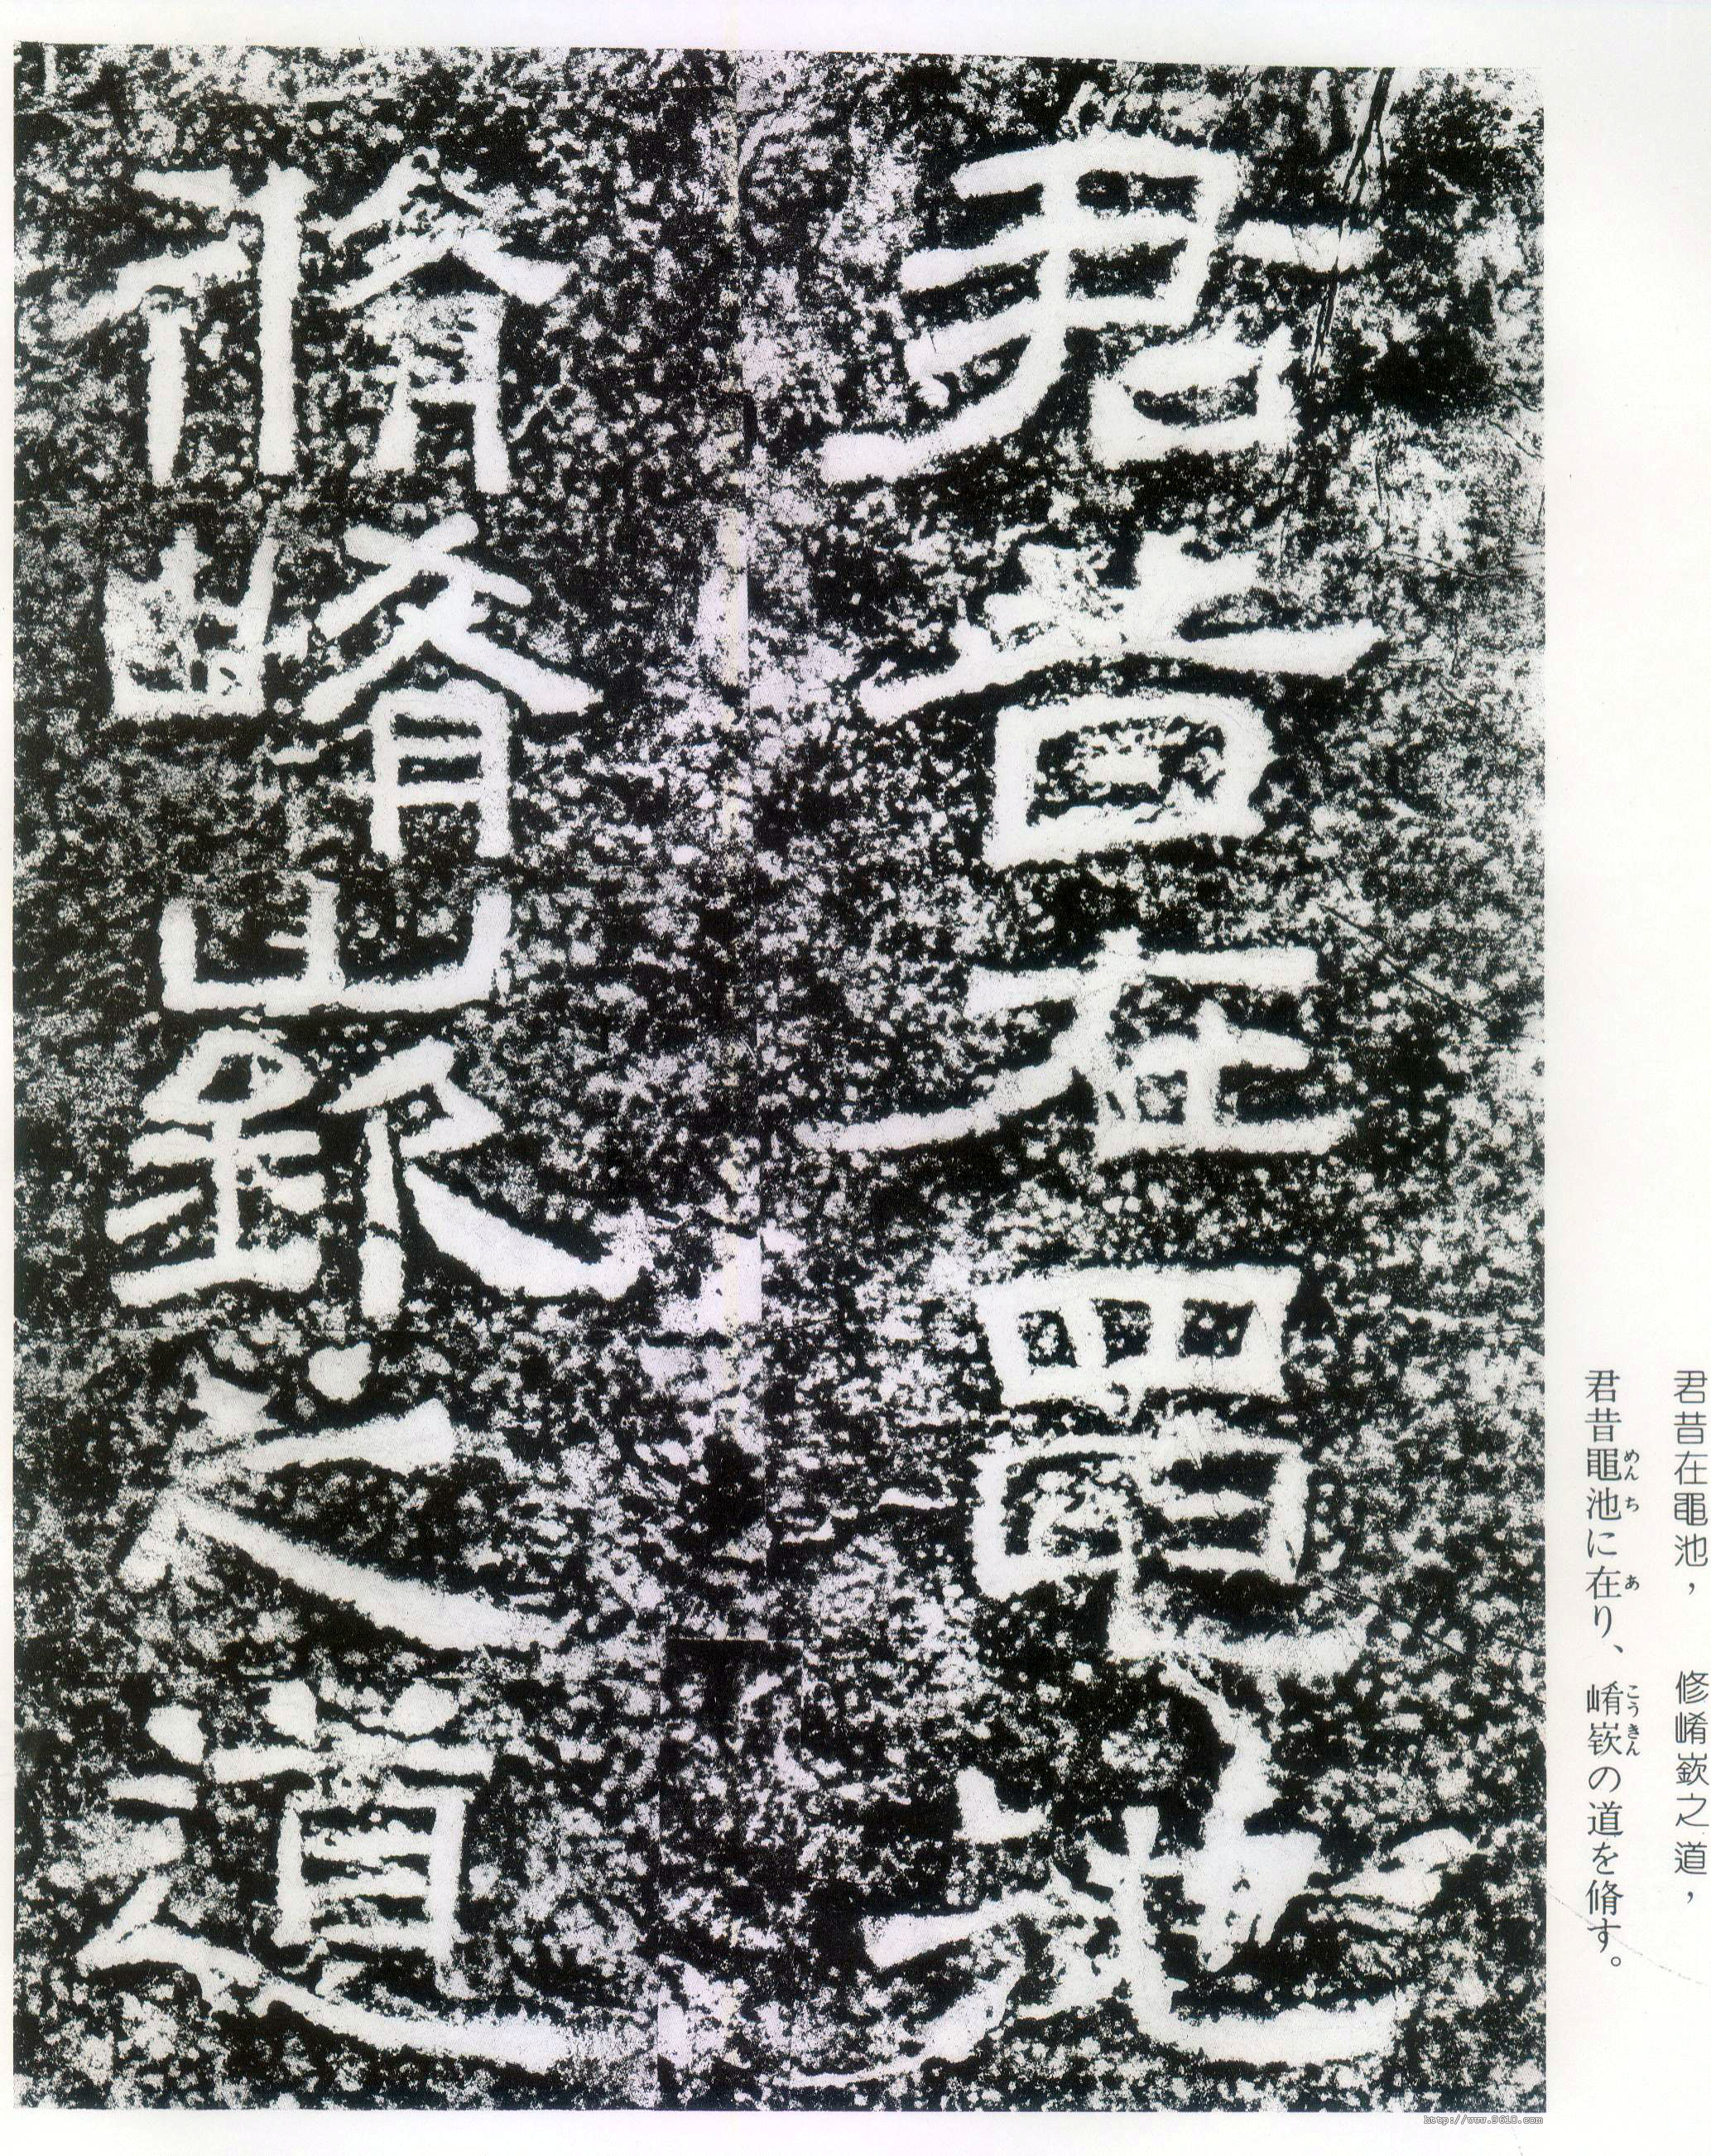 君昔在黽池，　修崤嶔之道，
君昔黽池に在り、崤嶔の道を脩す。
めんち
あ
こうきん
君昔在黽池
脩崤嶔之道
http://www.9610.com